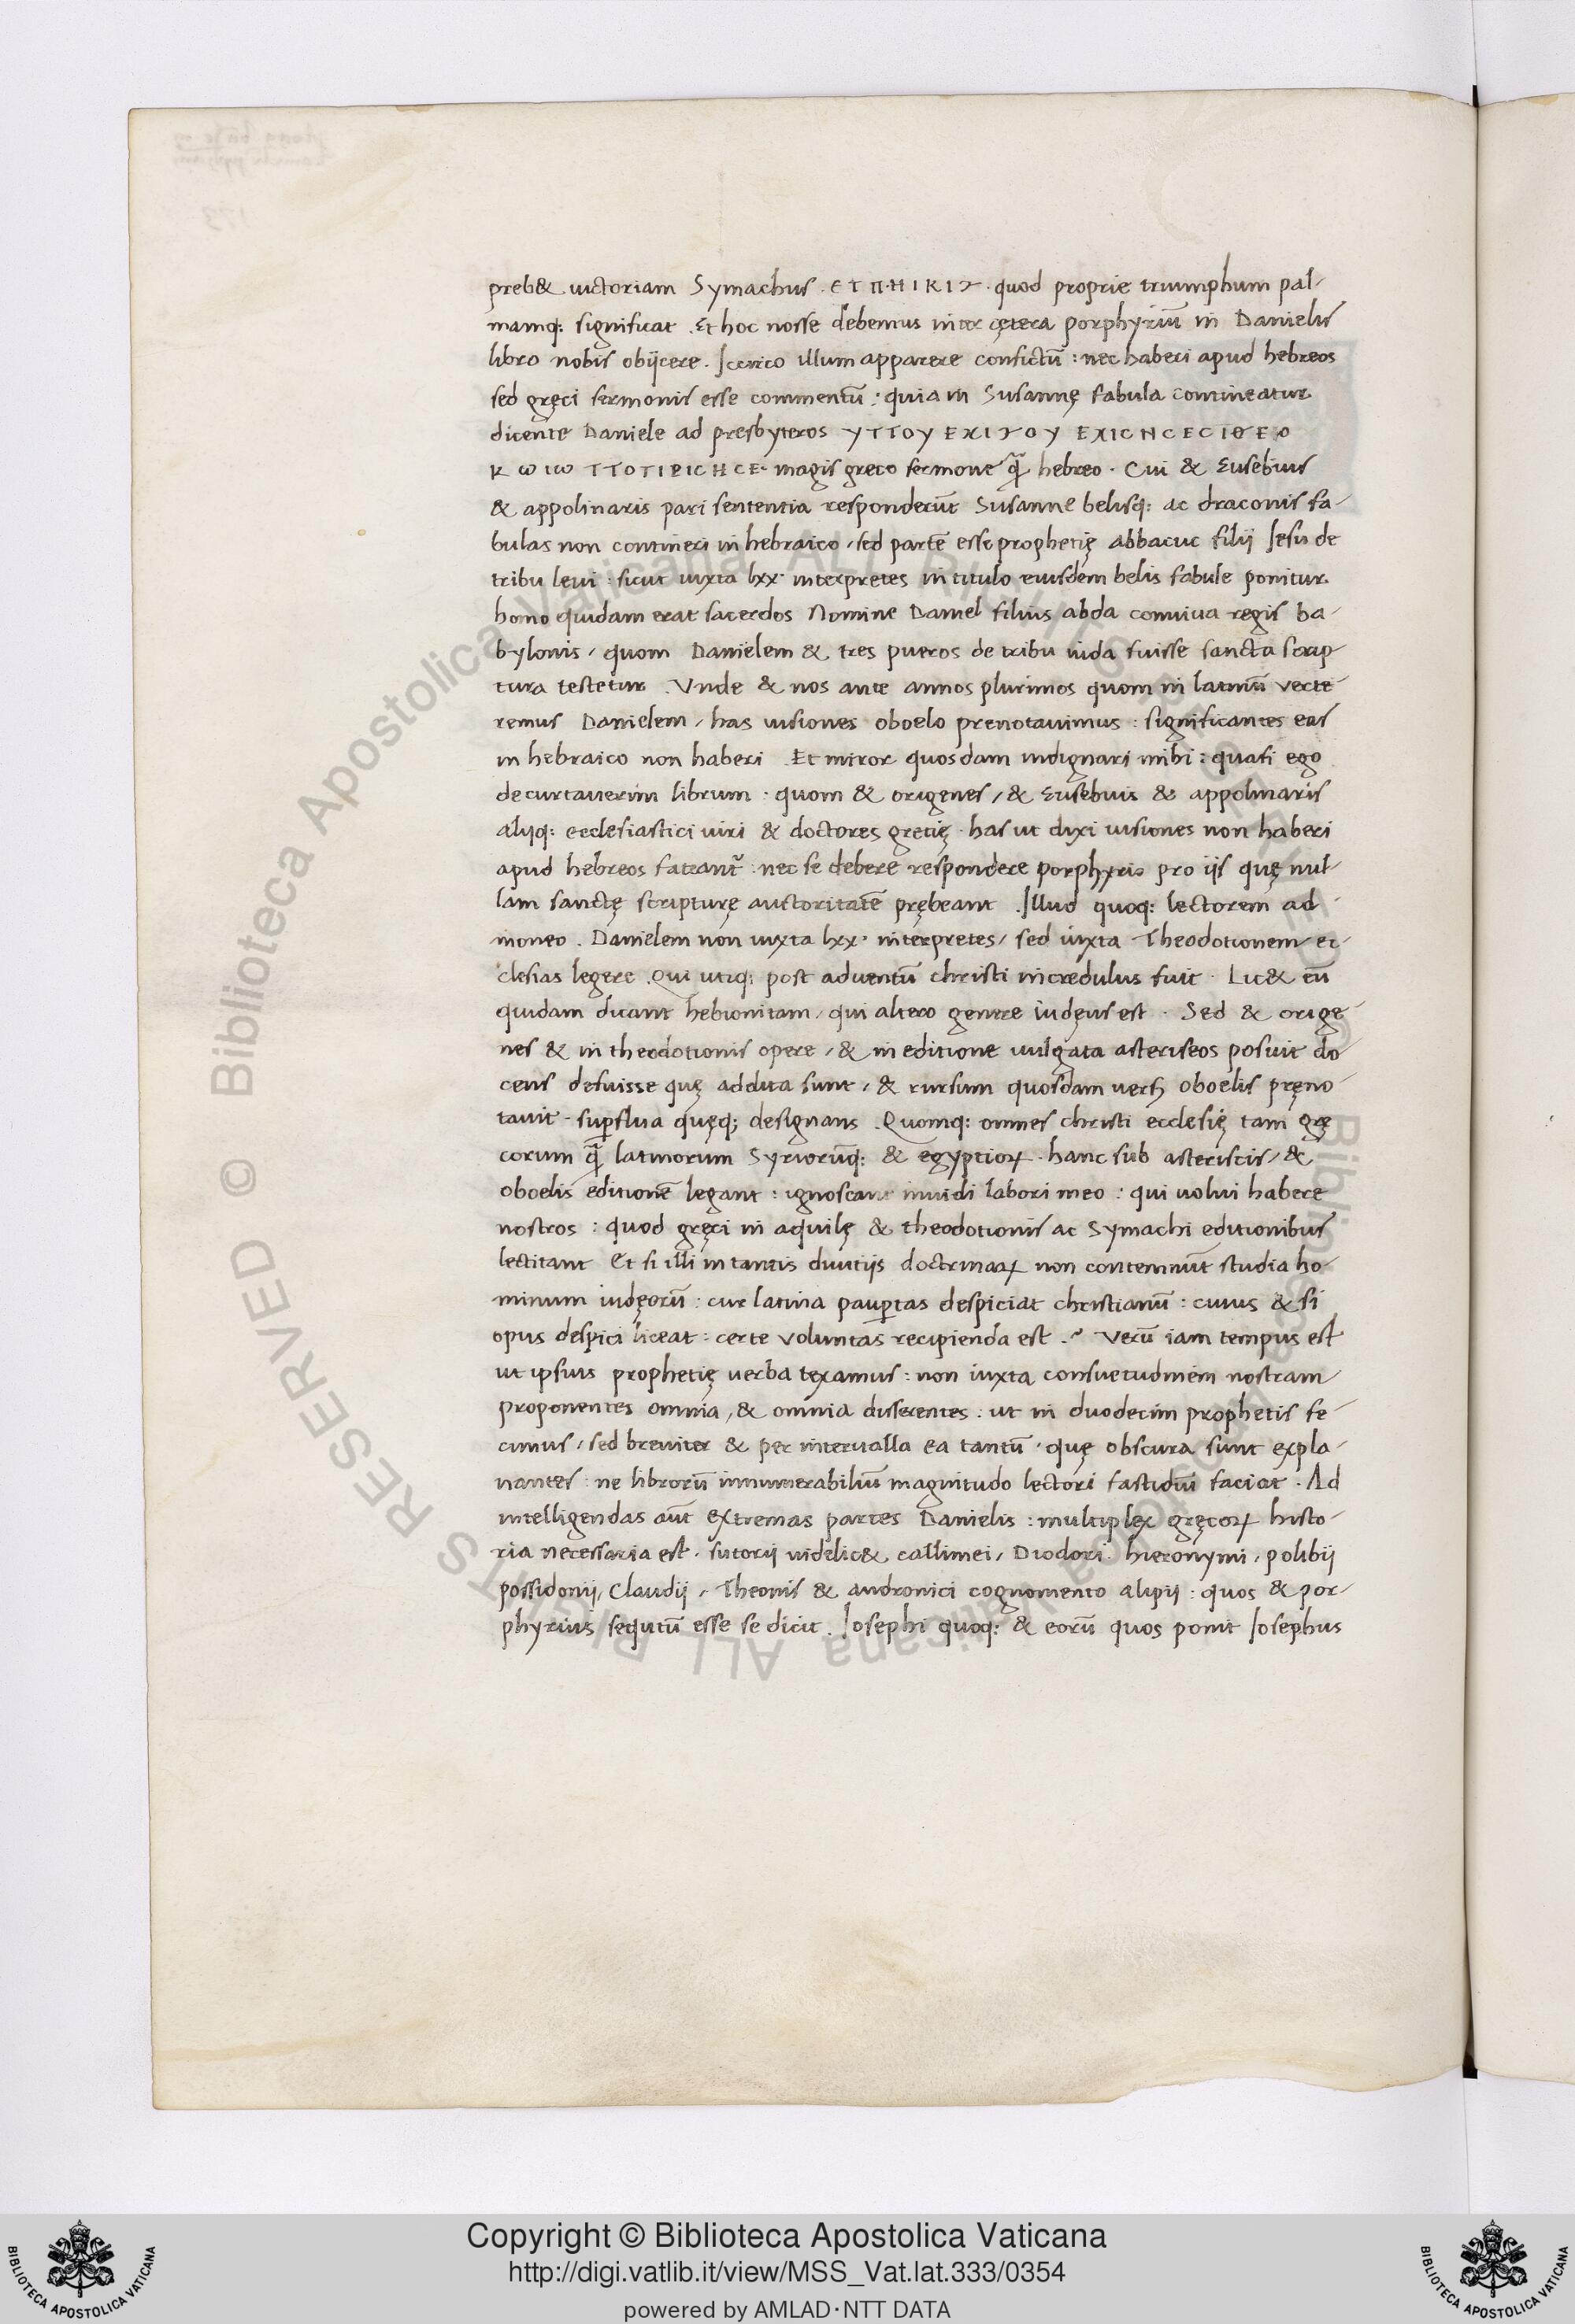 preb& uictoriam Symachus . ЄΤΠ·ΗΙΚΙΥ· quod proprie triumphum pal-
mamq: significat . Et hoc nosse debemus inter cętera porphyriū in Danielis
libro nobis obijcere . Iccirco illum apparere confictū : nec haberi apud hebreos
sed gręci sermonis esse commentū : quia in Susannę fabula contineatur
dicente Daniele ad presbyteros
magis greco sermone q̄ hebreo . Cui & Eusebius
& appolinaris pari sententia responderūt Susanne belisq: ac draconis fa-
bulas non contineri in hebraico / sed partē esse prophetię abbacuc filij Iesu de
tribu leui : sicut iuxta lxx· interpretes in titulo eiusdem belis fabule ponitur.
homo quidam erat sacerdos Nomine Daniel filius abda conuiua regis ba-
bylonis / quom Danielem & tres pueros de tribu iuda fuisse sancta scrip-
tura testetur . Vnde & nos ante annos plurimos quom in latinū verte-
remus Danielem / has uisiones oboelo prenotauimus : significantes eas
in hebraico non haberi . Et miror quosdam indignari mihi : quasi ego
decurtauerim librum : quom & origenes / & Eusebius & appolinaris
alijq: ecclesiastici uiri & doctores gretię · has ut dixi uisiones non haberi
apud hebreos fateant᷑ : nec se debere respondere porphyrio pro ijs quę nul-
lam sanctę scripturę auctoritatē prębeant . Illud quoq: lectorem ad-
moneo . Danielem non iuxta lxx· interpretes / sed iuxta Theodotionem ec-
clesias legere . Qui utiq: post aduentū christi incredulus fuit . Lic& eū
quidam dicant hebionitam / qui altero genere iudęus est . Sed & orige-
nes & in theodotionis opere / & in editione uulgata asteriscos posuit do-
cens defuisse quę addita sunt / & rursum quosdam vers̄ oboelis pręno-
tauit . suꝑflua quęq; designans . Quomq: omnes christi ecclesię tam grę
corum q̄ latinorum Syriorūq: & egyptioꝝ . hanc sub asteriscis / &
oboelis editionē legant : ignoscant inuidi labori meo : qui uolui habere
nostros : quod gręci in aquilę & theodotionis ac Symachi editionibus
lectitant Et si illi in tantis diuitijs doctrinaꝝ non contemnūt studia ho-
minum iudęorū : cur latina pauꝑtas despiciat christianū : cuius & si
opus despici liceat : certe voluntas recipienda est . Verū iam tempus est
ut ipsius prophetię uerba texamus : non iuxta consuetudinem nostram
proponentes omnia , & omnia disserentes : ut in duodecim prophetis fe-
cimus / sed breuiter & per interualla ea tantū · quę obscura sunt expla-
nantes : ne librorū innumerabiliū magnitudo lectori fastidiū faciat . Ad
intelligendas aūt extremas partes Danielis : multiplex gręcoꝝ histo-
ria necessaria est . sutorij uidelic& callimei / Diodori . hieronymi , polibij
possidonij , Claudij , Theonis & andronici cognomento alipij : quos & por-
phyrius sequtū esse se dicit . Iosephi quoq: & eorū quos ponit Iosephus
Copyright © Biblioteca Apostolica Vaticana
http://digi.vatlib.it/view/MSS_Vat.lat.333/0354
powered by AMLAD·NTT DATA
BIBLIOTECA APOSTOLICA VATICANA
BIBLIOTECA APOSTOLICA VATICANA